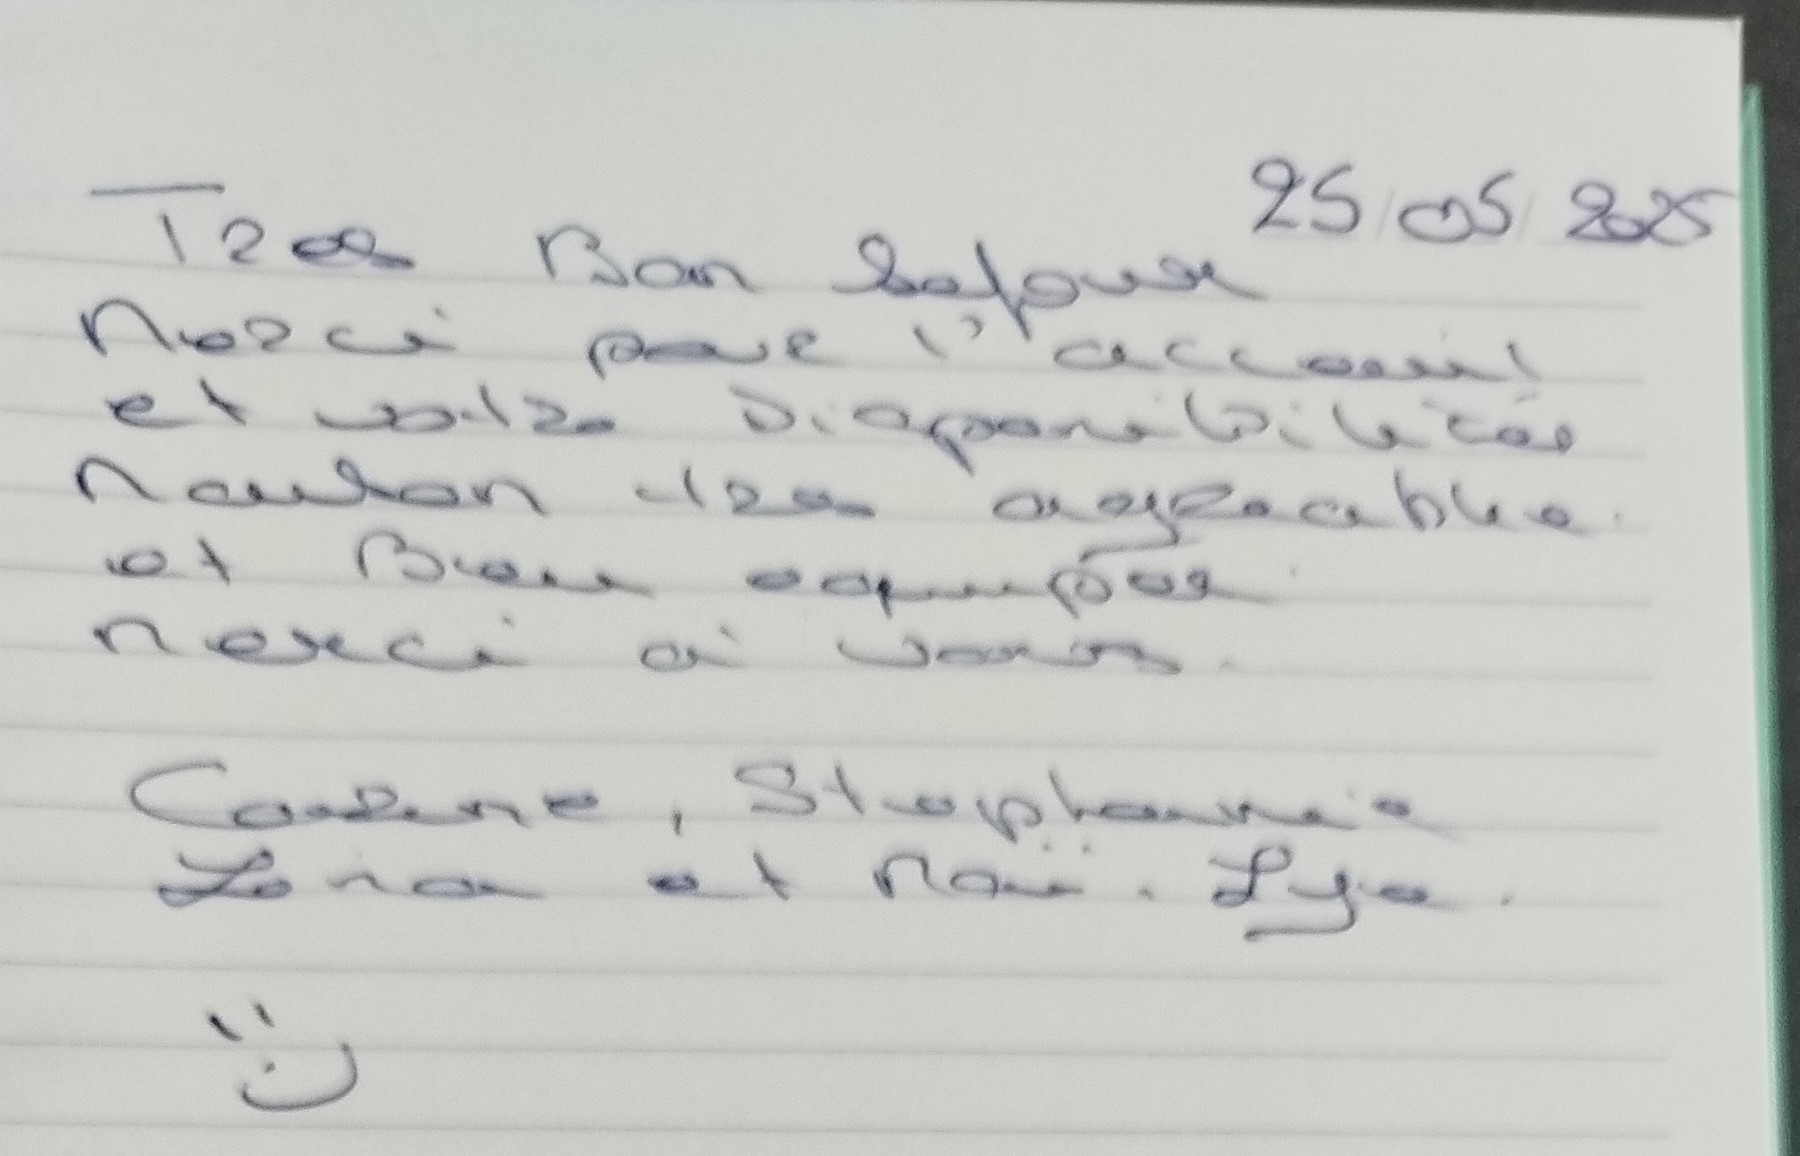 25/05/2025
Tres Bon Sejour
Merci pour l'accueil
et votre Disponibilités
Maison tres agreable.
et Bien equipée.
Merci à vous.
Carine, Stephanie
Lena et Maï. Lya.